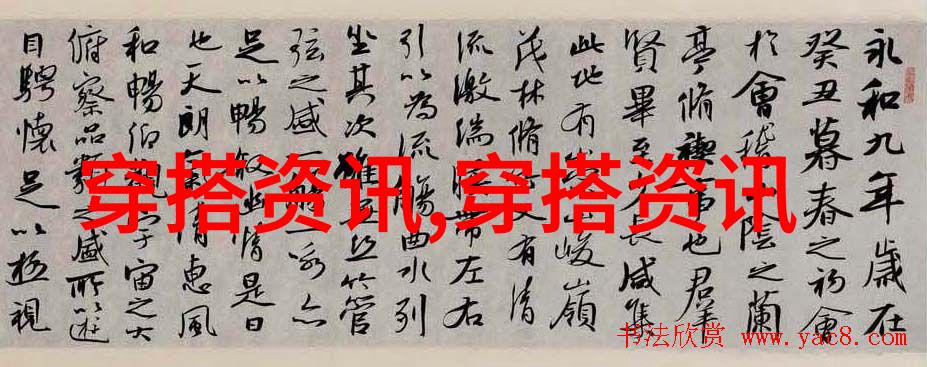 永和九年歲在
癸丑暮春之初會
於會稽山陰之蘭
亭脩禊事也羣
賢畢至少長咸集
此地有崇山峻嶺
茂林脩竹又有清
流激湍暎帶左右
引以為流觴曲水列
坐其次雖無絲竹管
弦之盛一觴一詠亦
足以暢敘幽情是日
也天朗氣清惠風
和暢仰觀宇宙之大
俯察品類之盛所以遊
目騁懷足以極視
穿搭资讯,穿搭资讯
书法欣赏 www.yac8.com